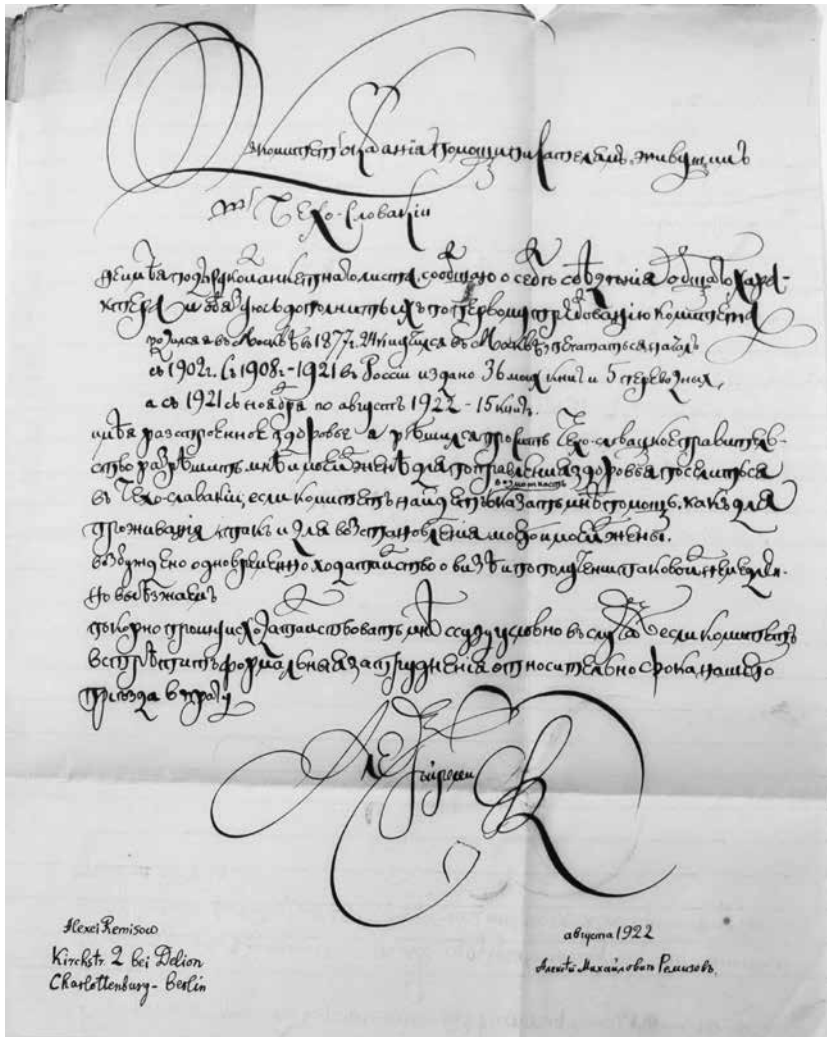 комитетъ оказанія помощи писателямъ, живущимъ
въ Чехо-Словакіи
не имѣя подъ рукой анкетнаго листа, сообщаю о себѣ свѣдѣнія общаго хара-
ктера и обязуюсь дополнить ихъ по первому требованію комитета
родился въ Москвѣ въ 1877 г. 24 учился въ Москвѣ печататься началъ
съ 1902 г. Съ 1908 г - 1921 въ Россіи издано 36 моихъ книгъ и 5 переводныхъ,
а съ 1921 съ ноября по августъ 1922 - 15 книгъ.
имѣя разстроенное здоровье я рѣшился просить Чехо-словацкое правитель-
ство разрѣшить мнѣ и моей женѣ для поправленія здоровья поселиться
возможность
въ Чехо-славакіи, если комитетъ найдетъ оказать мнѣ помощь, какъ для
проживанія, такъ и для возстановленія моего и моей жены.
возбуждено одновременно ходатайство о визѣ и по полученіи таковой немедлен-
но выѣзжаемъ
покорно прошу ходатайствовать мнѣ ссуду условно въ случаѣ если комитетъ
встрѣтитъ формальныя затрудненія относительно срока нашего
пріѣзда въ прагу
Алексѣй Ремизовъ
Alexei Remisow
Kirchstr. 2 bei Delion
Charlottenburg - Berlin
августа 1922
Алексѣй Михайловичъ Ремизовъ.